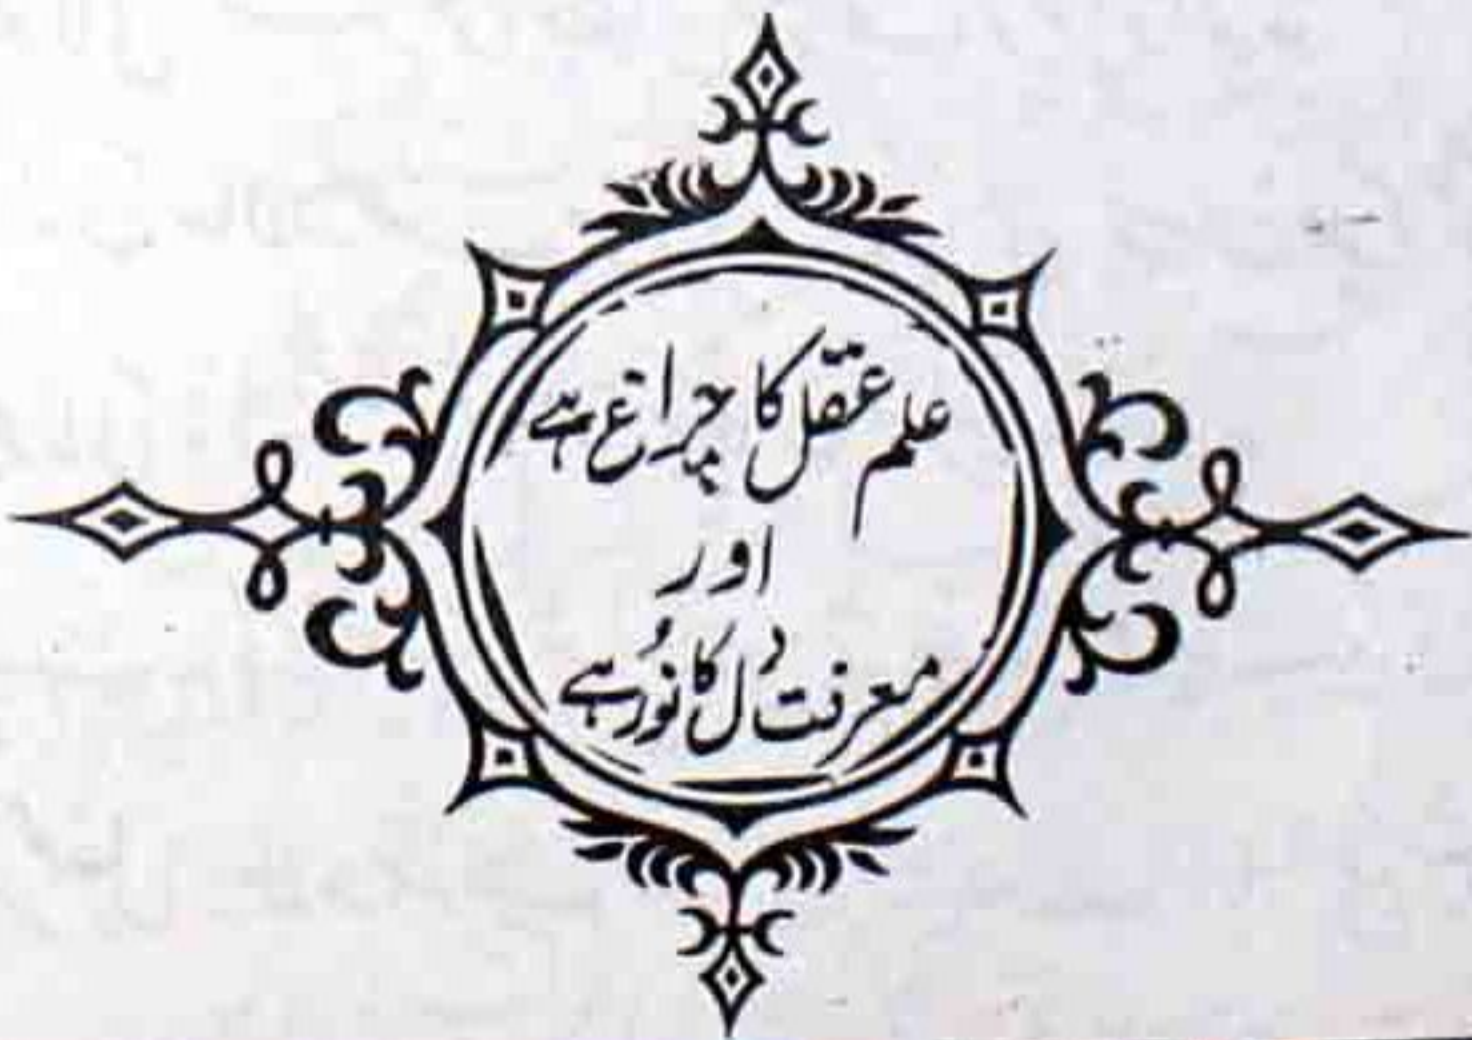 علم عقل کا چراغ ہے
اور
معرفت دل کا نُور ہے